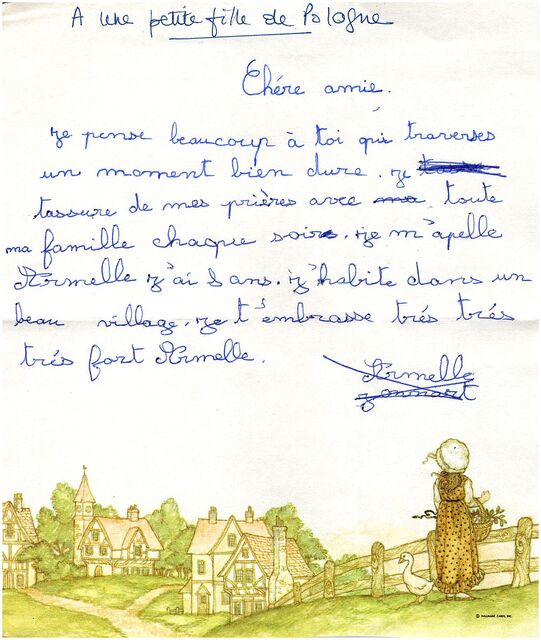 A une petite fille de Pologne
Chére amie.
je pense beaucoup à toi qui traverses
un moment bien dure. je
tassure de mes prières avec toute
ma famille chaque soir. je m'apelle
Armelle j'ai 8 ans. j'habite dans un
beau village. je t'embrasse trés trés
trés fort Armelle.
Armelle
© HALLMARK CARDS, INC.